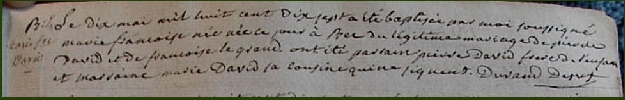 Le dix mai mil huit cent dix sept a été baptisée par moi soussigné
marie francoise née le jour à Bee du légitime mariage de pierre
David et de francoise le grand. ont été parrain pierre David frere
et marraine marie David sa cousine qui ne signent. Durand